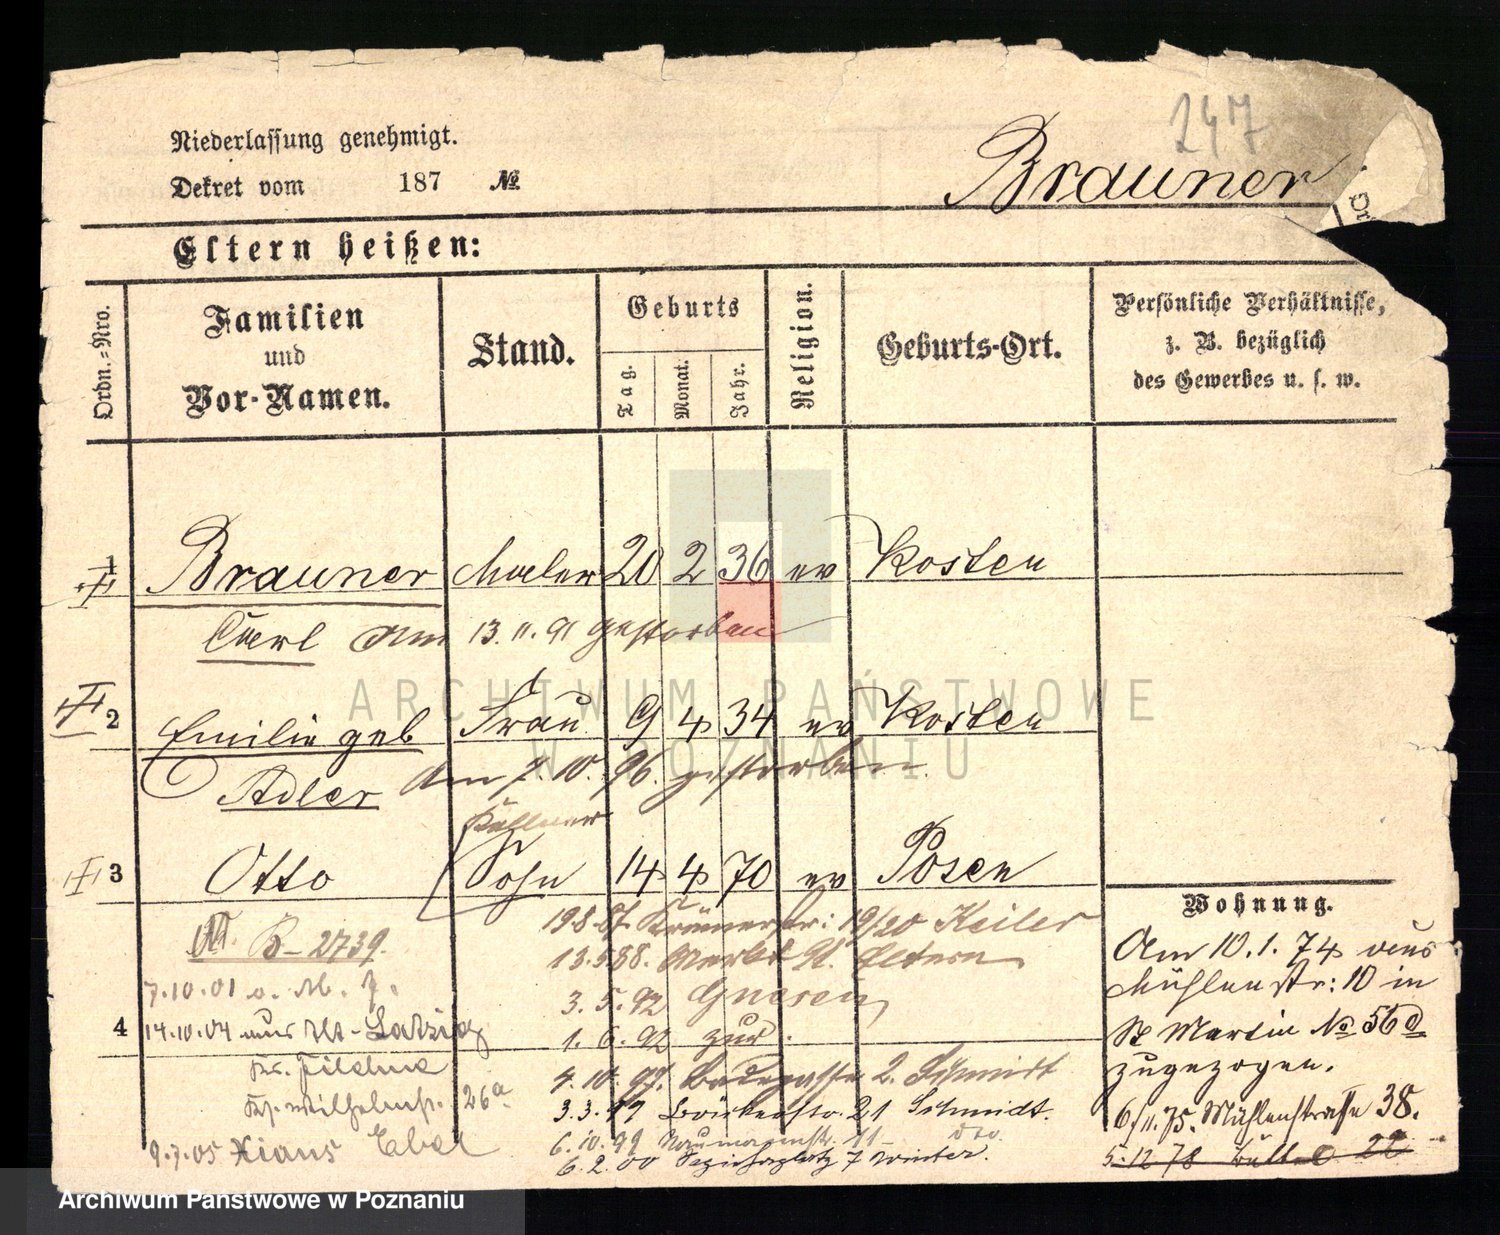 247
Niederlassung genehmigt.
Dekret vom 187 №
Brauner
Eltern heißen:
Ordn.=Nro.
Familien
und
Vor-Namen.
Stand.
Geburts
Tag.
Monat.
Jahr.
Religion.
Geburts-Ort.
Persönliche Verhältnisse,
z. B. bezüglich
des Gewerbes u. s. w.
1 Brauner Maler 20 2 36 ev Kosten
Carl Am 13. 11. 91 gestorben
2 Emilie geb Frau 9 4 34 ev Kosten
Adler Am 7. 10. 96. gestorben.
Kellner
3 Otto Sohn 14 4 70 ev Posen
B-2739.
7.10.01
14.10.04 aus
Kr. Filehne
Wilhelmstr. 26a
9.7.05
4
19.8.87. Krämerstr: 19/20 Keiler
13.5.88. Markt 91. Eltern
3. 5. 92 Gnesen
1. 6. 92 zur.
4. 10. 97. 2. Schmidt
3. 3. 21 Schmidt.
6. 10. 99 11 dto.
6. 2. 00 7 Winter.
Wohnung.
Am 10. 1. 74 aus
Mühlenstr: 10 in
St Martin No 56
zugezogen.
6/11. 75. Mühlenstraße 38.
5. 12 78 22
ARCHIWUM PAŃSTWOWE
W POZNANIU
Archiwum Państwowe w Poznaniu